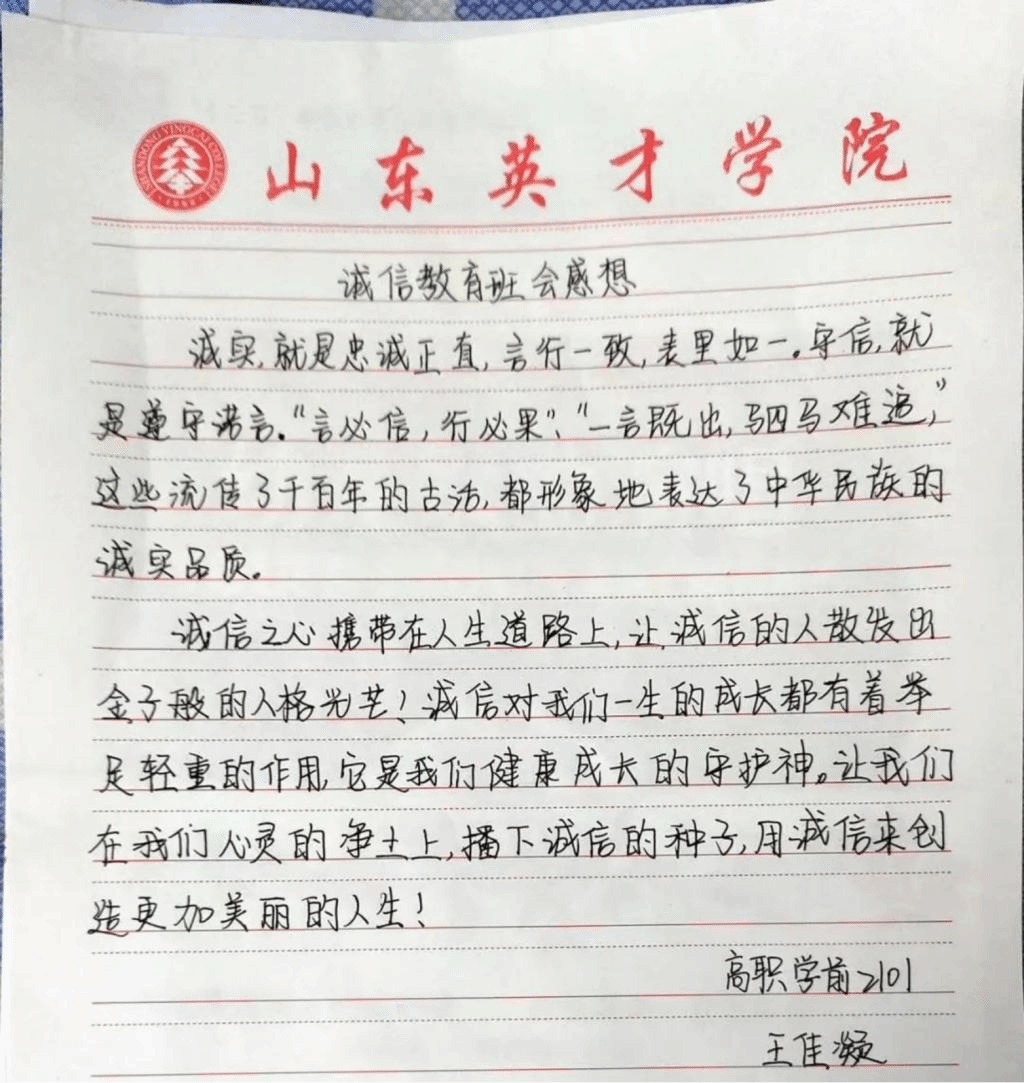 SHANDONG YINGCAI COLLEGE
1998
山东英才学院
诚信教育班会感想
诚实,就是忠诚正直,言行一致,表里如一。守信,就
是遵守诺言。“言必信,行必果”、“一言既出,驷马难追,”
这些流传了千百年的古话,都形象地表达了中华民族的
诚实品质。
诚信之心携带在人生道路上,让诚信的人散发出
金子般的人格光芒!诚信对我们一生的成长都有着举
足轻重的作用,它是我们健康成长的守护神。让我们
在我们心灵的净土上,播下诚信的种子,用诚信来创
造更加美丽的人生!
高职学前2101
王佳灏